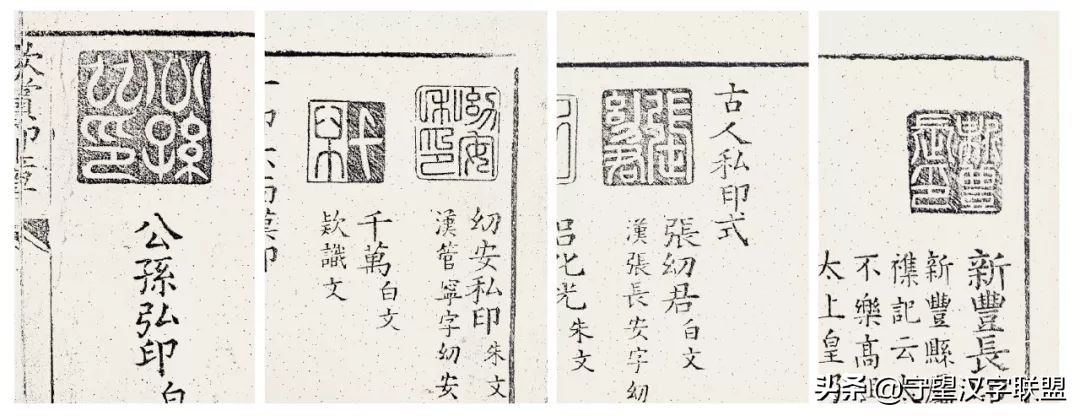 公孫弘印 白
幼安私印 朱文
漢管寧字幼安
千萬 白文
欵識文
古人私印式
張幼君 白文
漢張長安字幼
呂化光 朱文
新豐長
新豐縣
襍記云
不樂高
太上皇
头条@守望汉字联盟